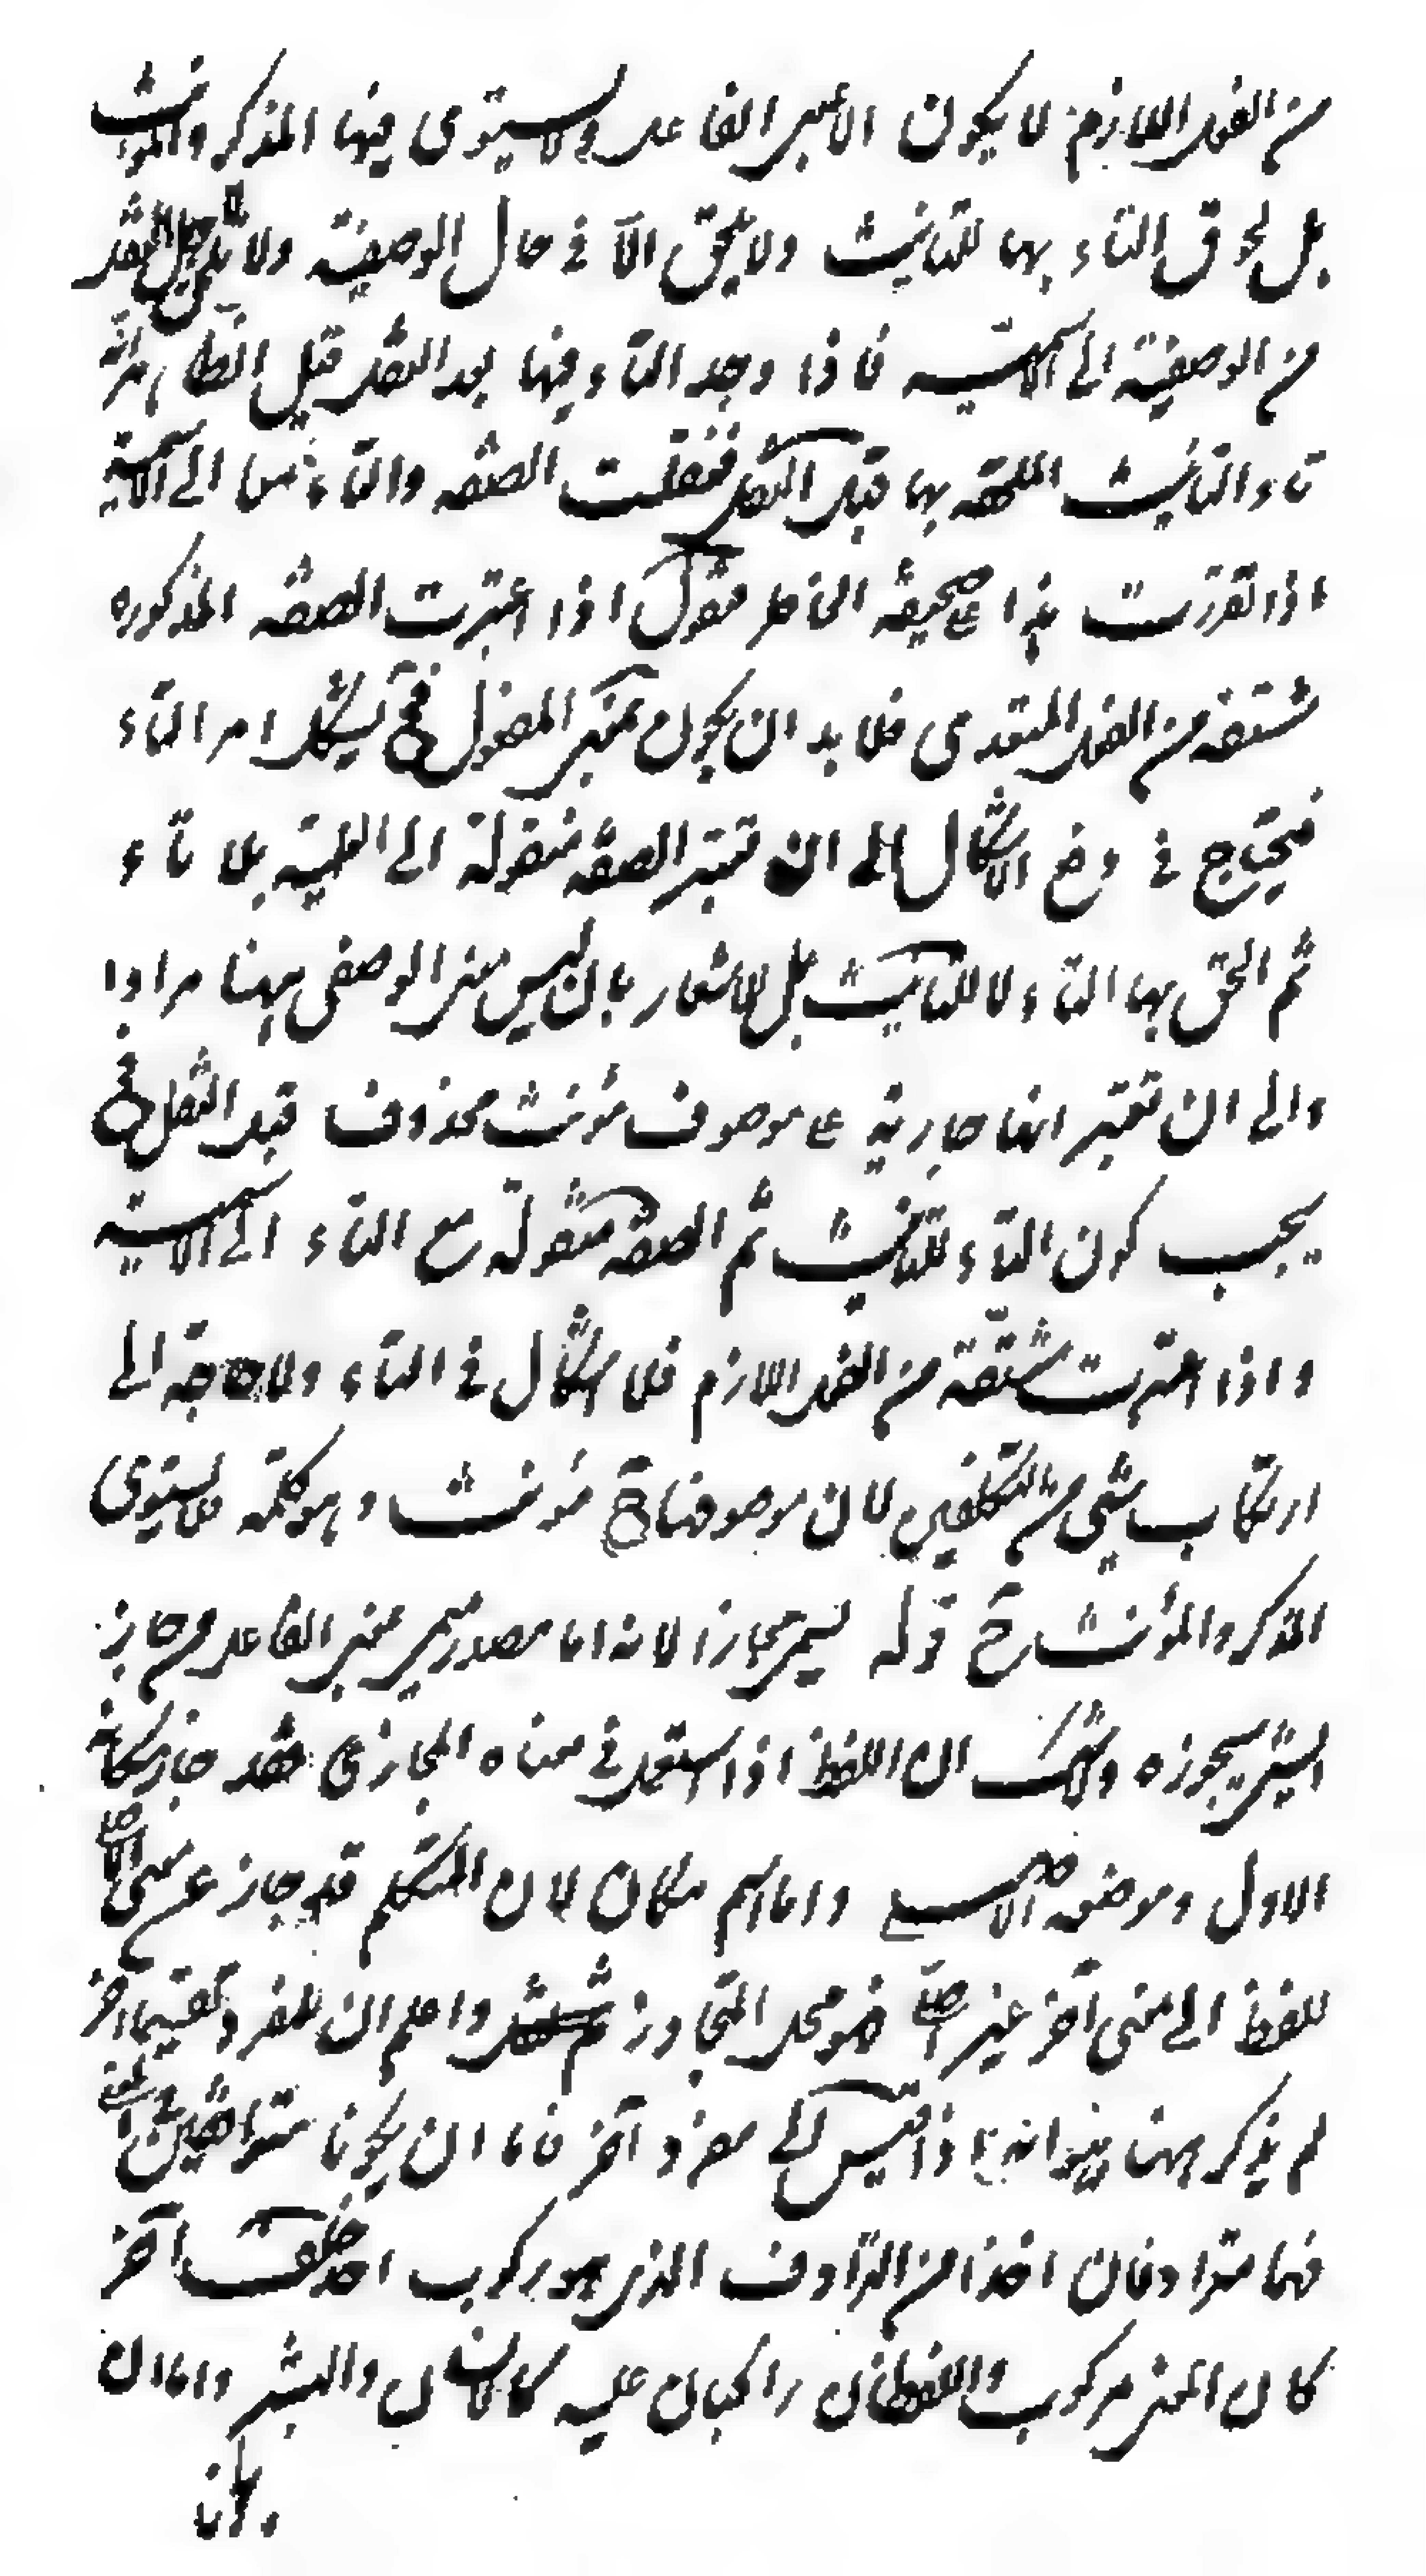 من الفعل اللازم لا يكون الا بمعنى الفاعل ولا يستوى فيها المذكر والمؤنث
بل لحوق التاء بها للتانيث ولا يلحق الا فى حال الوصفية ولا النقل
من الوصفية الى الاسمية فاذا وجد التاء فيها بعد النقل قيل انها
تاء التانيث الملحقة بها قبل النقل فنقلت الصفة والتاء معا الى الاسمية
اذا تقررت هذا ع صحيفة الخاطر فنقول اذا اعتبرت الصفة المذكورة
مشتقة من الفعل المتعدى فلا بد ان يكون بمعنى المفعول فح يشكل امر التاء
فيحتاج فى دفع الاشكال الى ان تعتبر الصفة منقولة الى العلمية بلا تاء
ثم الحق بها التاء لا للتانيث بل للاشعار بان ليس معنى الوصفى ههنا مرادا
والى ان تعتبر انها جارية ع موصوف مؤنث محذوف قبل النقل فح
يجب كون التاء للتانيث ثم الصفة منقولة مع التاء الى الاسمية
واذا اعتبرت مشتقة من الفعل اللازم فلا اشكال فى التاء ولا حاجة الى
ارتكاب شئ من التكلفين لان موصوفها ح مؤنث وهو كلمة فلا يستوى
المذكر والمؤنث ح قوله يسمى مجازا لانه اما مصدر ميمى بمعنى الفاعل من جاز
الشئ يجوزه ولا شك ان اللفظ اذا استعمل فى معناه المجازى فقد جاز مكانه
الاول وموضعه الاصلى واما اسم مكان لان المتكلم قد جاز عن معنى الاصلى
للفظ الى معنى آخر غير اصلى فهو محل التجاوز واعلم ان للمفرد تقسيما آخر
لم يذكر ههنا وهو انه اذا قيس الى مفرد آخر فاما ان يكونا متوافقين فى المعنى
فهما مترادفان اخذا من الترادف الذى هو ركوب احد خلف آخر
كان المعنى مركوب واللفظان راكبان عليه كالانسان والبشر واما ان
يكونا